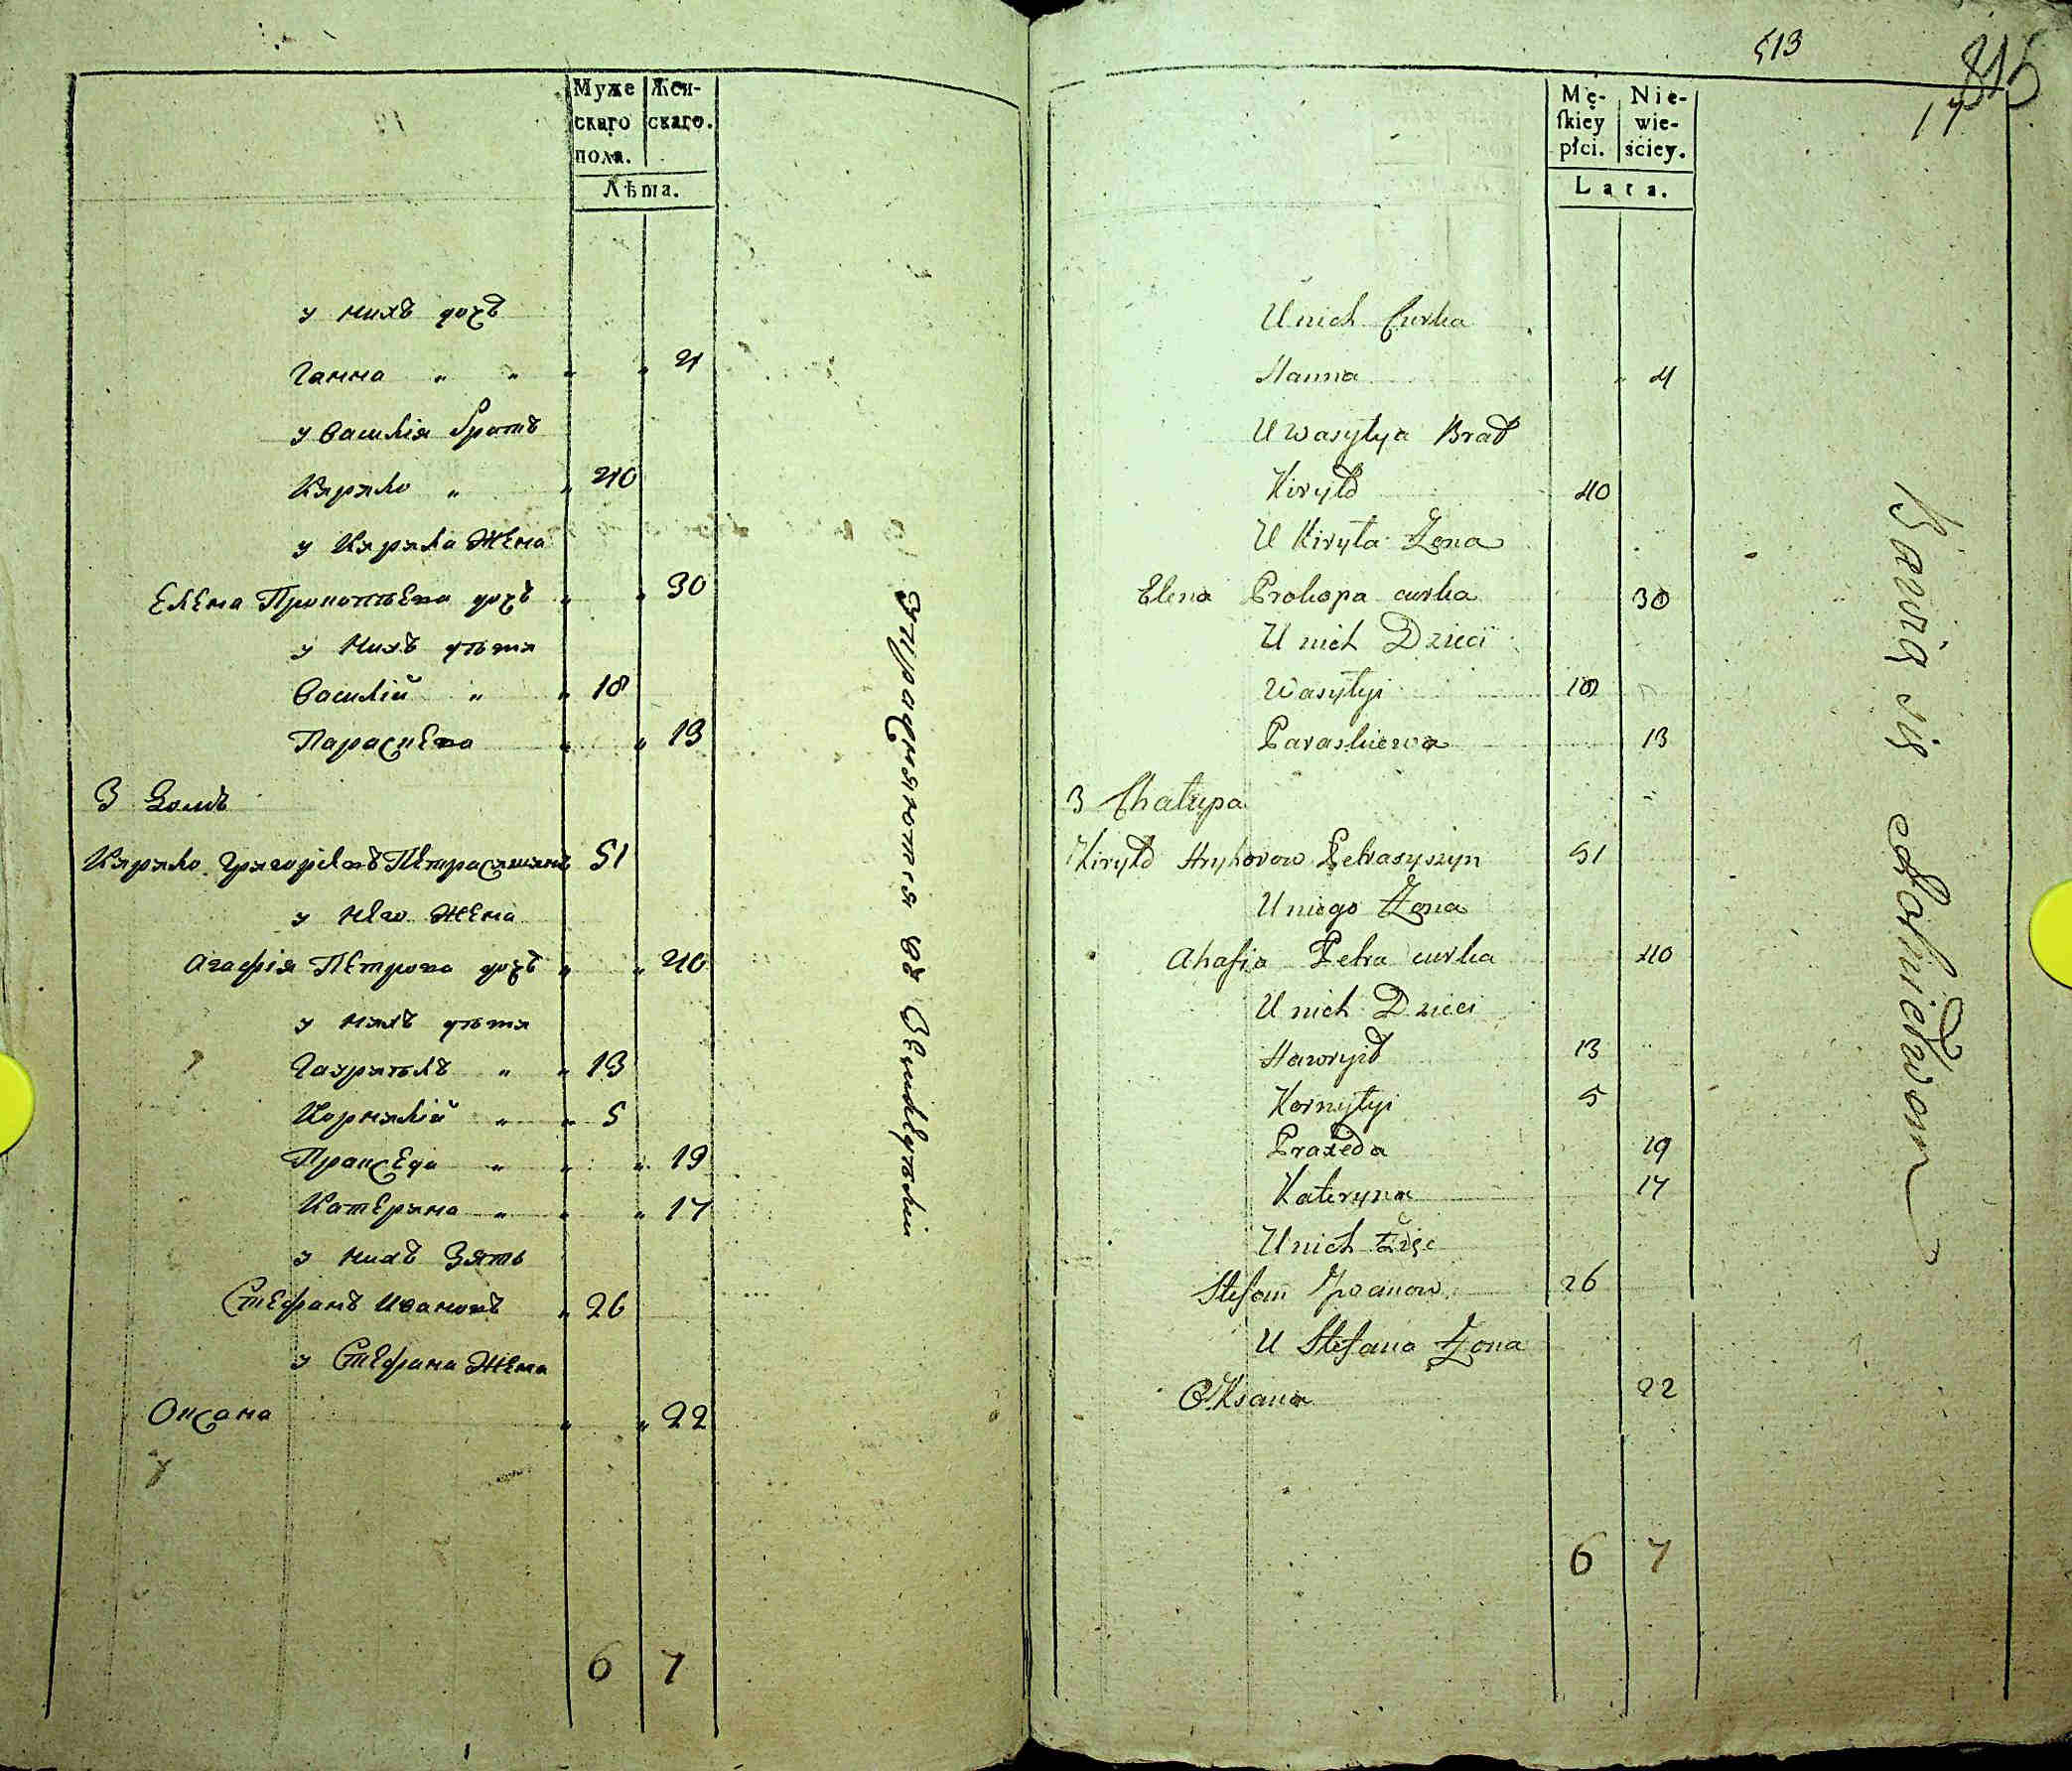 Муже
скаго
пола.
Жен-
скаго.
Лѣта.
у нихъ дочъ
Ганна „ „ „ „ 4
у Василія братъ
Кирило „ „ 40
у Кирила Жена
Елена Прокопіева дочъ „ „ 30
у нихъ дѣти
Василій „ „ 18
Параскева „ „ 13
3 Домъ
Кирило Григоріевъ Петрасишинъ 51
у него Жена
Агафія Петрова дочъ „ „ 40
у нихъ дѣти
Гавриилъ „ „ 13
Корнилій „ „ 5
Пракседа „ „ „ 19
Катерина „ „ „ 17
у нихъ Зять
Стефанъ Ивановъ „ 26
у Стефана Жена
Оксана „ „ 22
у
6 7
Упражняются въ Земледѣліи
513
315
17
Mę-
skiey
płci.
Nie-
wie-
ściey.
Lata.
U nich Curka
Hanna „ 4
U Wasylya Brat
Kiryło 40
U Kiryła Zona
Elena Prokopa curka 30
U nich Dzieci
Wasylyi 18
Paraskiewa 13
3 Chałupa
Kiryło Hryhorow Petrasyszyn 51
U niego Zona
Ahafia Petra curka 40
U nich Dzieci
Hawryił 13
Kornylyi 5
Praxeda 19
Kateryna 17
U nich Zięć
Stefan Iwanow 26
U Stefana Zona
Oksana 22
6 7
Bawią się Rolnictwom